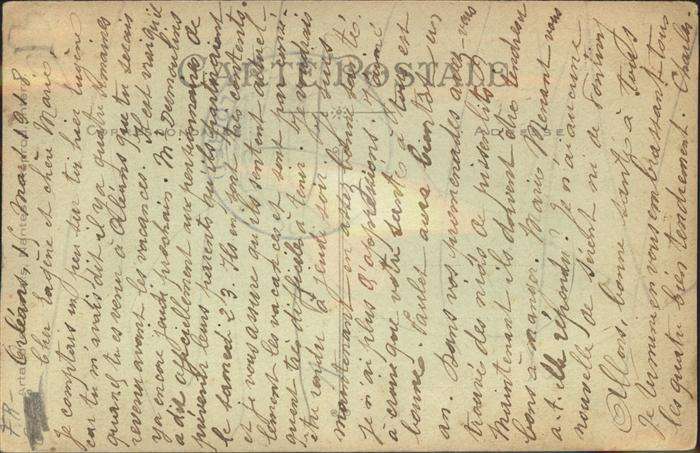 CARTE POSTALE
CORRESPONDANCE
ADRESSE
Orléans, 15 mars 1918
Cher Eugène et chère Marie
Je comptais un peu sur toi hier Eugène
car tu m'avais dit il y a quatre semaines
quand tu es venu à Orléans que tu serais
revenu avant les vacances. Il est vrai qu'il
y a encore jeudi prochain. M. Desmoulins
a dit officiellement aux pensionnaires de
prévenir leurs parents qu'ils partiraient
le samedi 23. Ils en sont très contents.
et je vous assure qu'ils sentent actuel-
lement les vacances et sont par
aussi très difficiles à tenir.
être rendu à jeudi soir. Je suis
maintenant en assez bonne santé.
je n'ai plus d'oppressions. J'aime
à croire que votre santé à tous est
bonne.
an. Dans vos promenades avez-vous
trouvé des nids de pissenlits?
Maintenant ils doivent être tendres
bons à manger. Marie Menant vous
a-t-elle répondu? Je n'ai aucune
nouvelle de ni de
Allons, bonne santé à tous
Je termine en vous embrassant tous
les quatre bien tendrement. Charles.